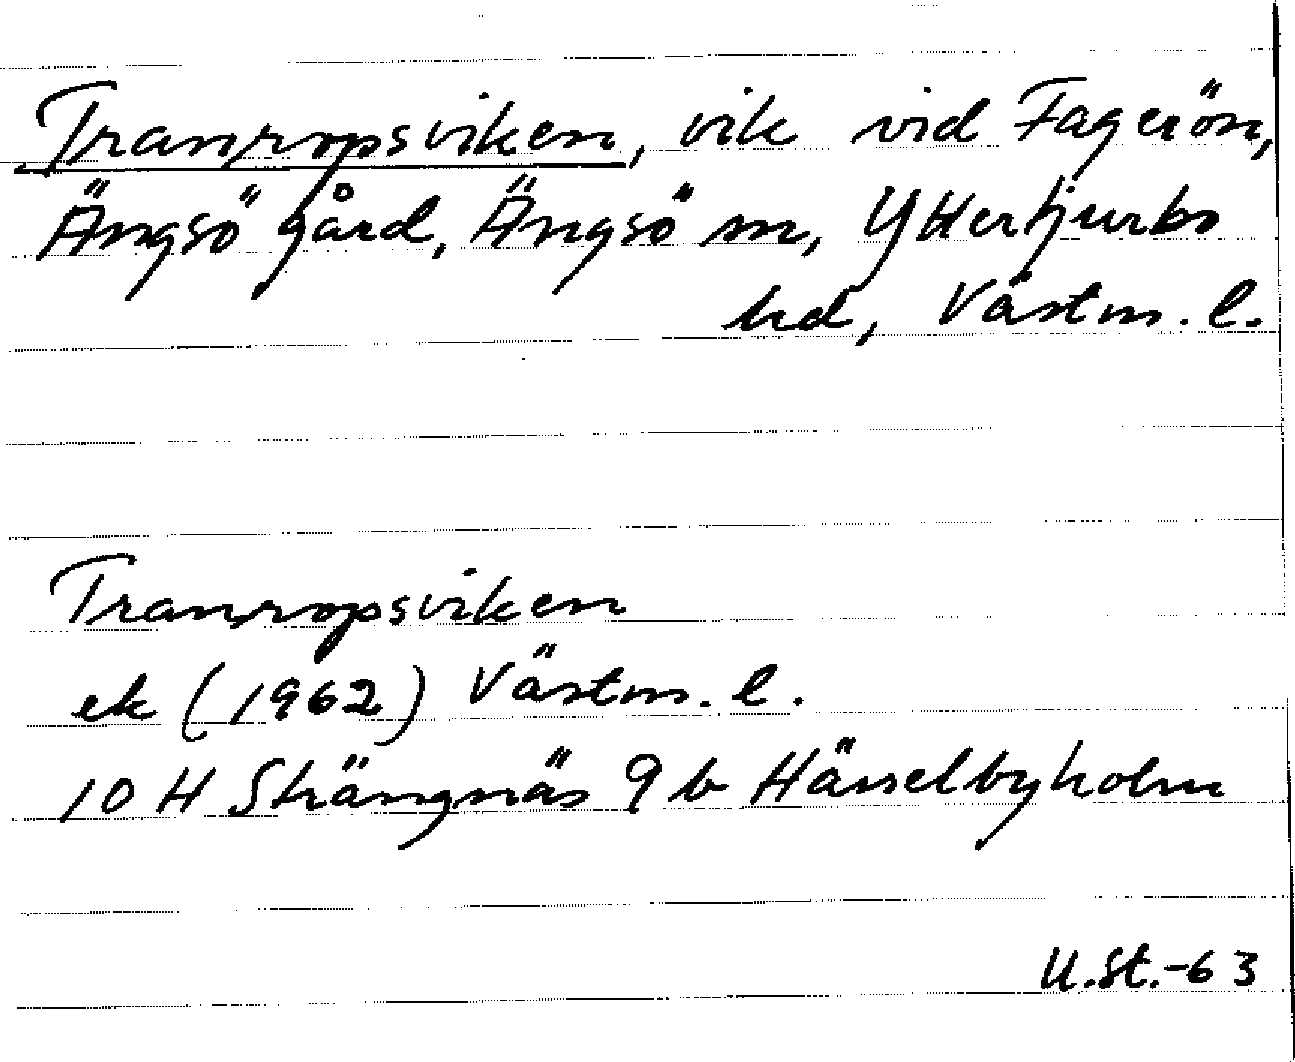 Tranropsviken, vik vid Fagerön,
Ängsö gård, Ängsö sn, Yttertjurbo
hd, Västm. l.
Tranropsviken
ek (1962) Västm. l.
10 H Strängnäs 9 b Hässelbyholm
U.St.-63